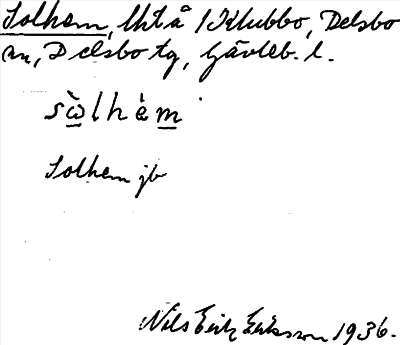 Solhem, lht å /Klubbo, Delsbo
sn, Delsbo tg, Gävleb. l.
sὼ̱lhè̱m̱
Solhem jb
Nils Erik Eriksson 1936.